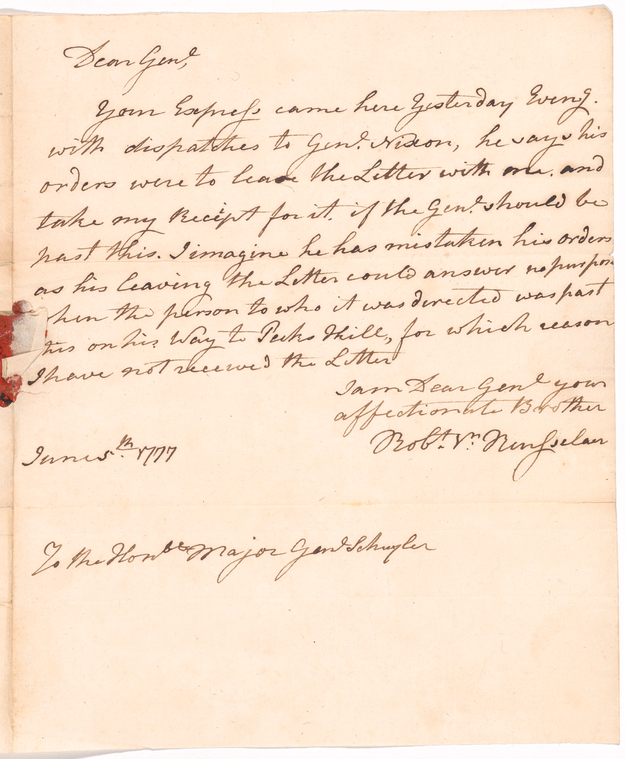 Dear Genl,
Your Express came here Yesterday Eveng.
with dispatches to Genl. Nixon, he says his
orders were to leave the Letter with me. and
take my Receipt for it. if the Genl. should be
past this. I imagine he has mistaken his orders
as his leaving the Letter could answer no purpose
hen the person to who it was directed was past
his on his Way to Peeks Kill, for which reason
I have not received the Letter
I am Dear Genl your
affectionate Brother
Robt. Vn. Renſselaer
June 5th. 1777
To the Honble Major Genl Schuyler